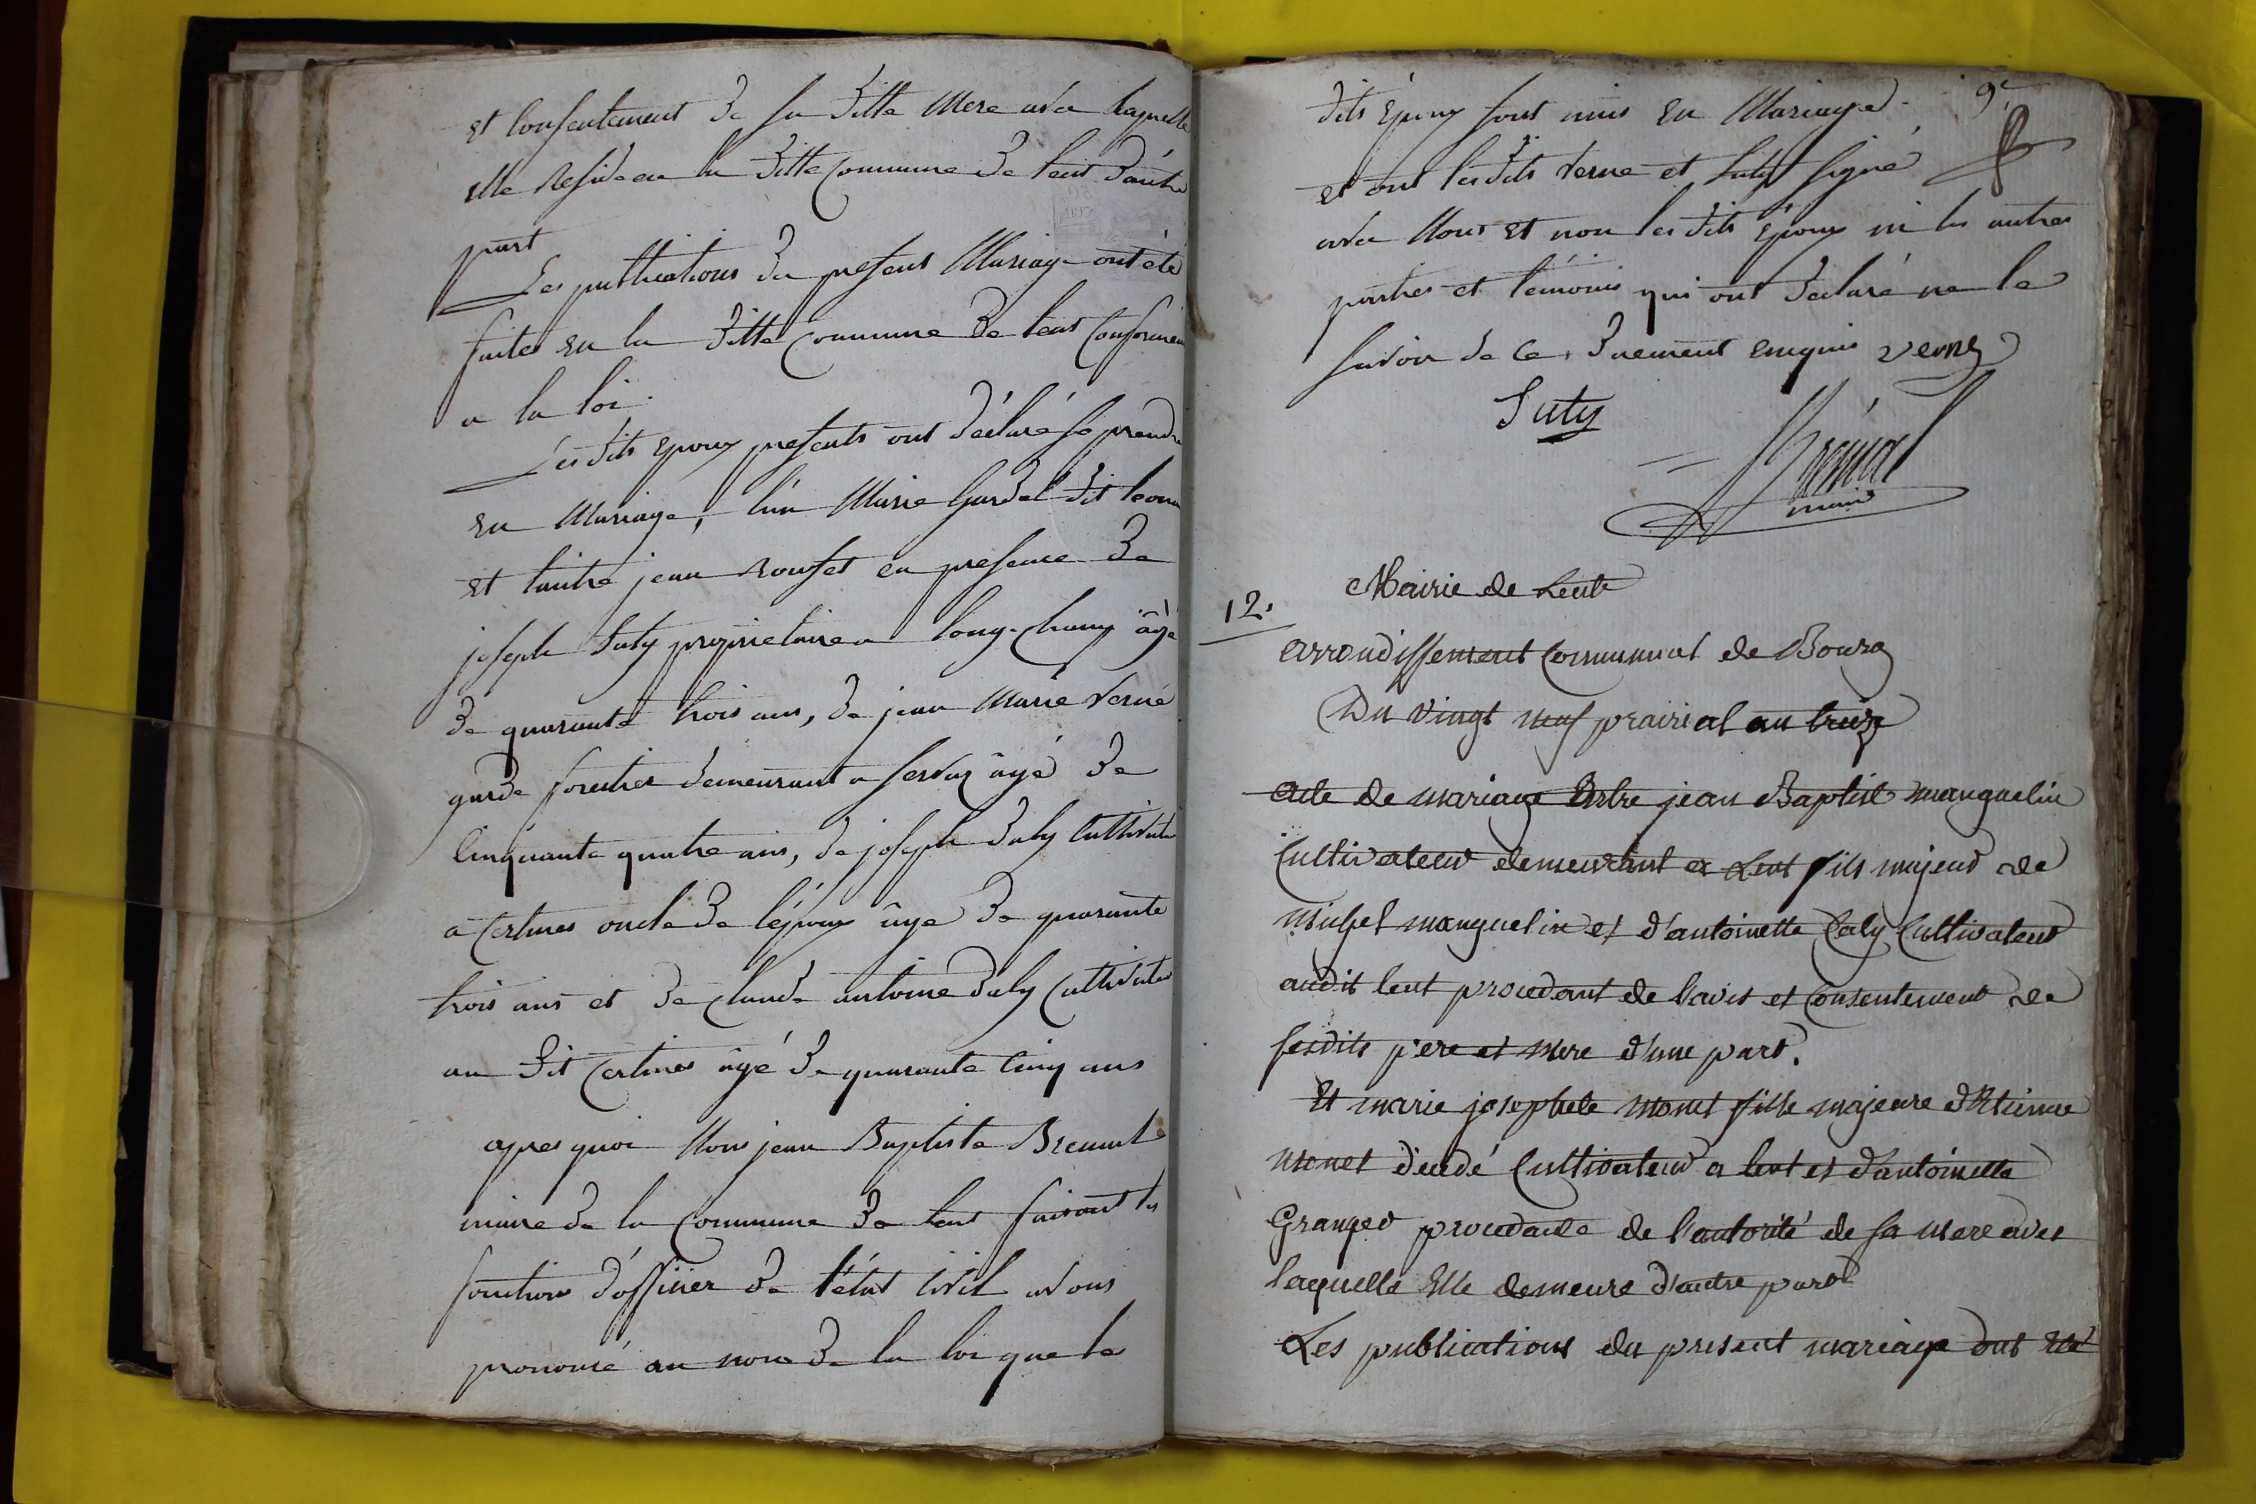 et Consentement de sa ditte Mere avec laquelle
elle Reside en la ditte Commune de lent d'autre
part
Les publications du present Mariage ont été
faites en la ditte Commune de lent Conformém
a la loi.
Lesdits Epoux presents ont déclaré se prendre
en Mariage, l'un Marie Gardel dit
et l'autre jean Rousset en presence de
joseph Suty proprietaire a long-Champ âgé
de quarante trois ans, de jean Marie Verne
garde forestier demeurant a Servaz âgé de
Cinquante quatre ans, de joseph Daly Cultivate
a Certines oncle de l'époux âgé de quarante
trois ans et de Claude antoine Daly Cultivate
au dit Certines âgé de quarante Cinq ans
apres quoi Nous jean Baptiste
maire de la Commune de lent faisant les
fonctions d'officier de l'état Civil avons
prononcé au nom de la loi que les
dits Époux sont unis en Mariage
9e
et ont lesdits Verne et Suty signé
avec Nous et non lesdits Époux ni les autres
parties et témoins qui ont déclaré ne le
savoir de ce duement enquis verne
Suty
maire
12.
Mairie de Lent
arrondissement Communal de Bourg
Du vingt neuf prairial an treize
acte de mariage Entre jean Baptist manguelin
Cultivateur demeurant a Lent fils majeur de
michel manguelin et d'antoinette Caly Cultivateur
audit lent procedant de l'avis et Consentement de
sesdits pere et mere d'une part.
Et marie josephete monet fille majeure d'Etienne
monet dècedé Cultivateur a lent et d'antoinette
Granger procedante de l'autorité de sa mere avec
laquelle Elle demeure d'autre part
Les publications du present mariage ont été